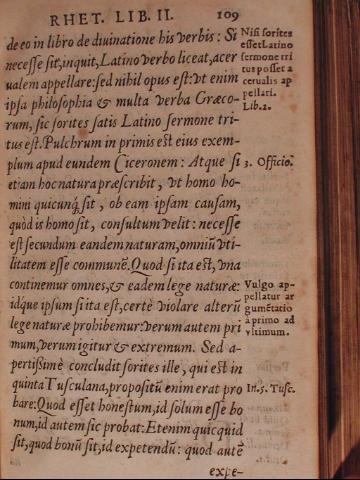 RHET. LIB. II. 109
de eo in libro de diuinatione his verbis: Si
necesse sit, inquit, Latino verbo liceat, acer
ualem appellare: sed nihil opus est: vt enim
ipsa philosophia & multa verba Græco-
rum, sic sorites satis Latino sermone tri
tus est. Pulchrum in primis est eius exem-
plum apud eundem Ciceronem: Atque si
etiam hoc natura præscribit, vt homo ho-
mini quicunq; sit, ob eam ipsam causam,
quòd is homo sit, consultum velit: necesse
est secundum eandem naturam, omniũ vti-
litatem esse communẽ. Quod si ita est, vna
continemur omnes, & eadem lege naturæ:
idque ipsum si ita est, certè violare alterũ
lege naturæ prohibemur: verum autem pri
mum, verum igitur & extremum. Sed a-
pertißimè concludit sorites ille, qui est in
quinta Tusculana, propositũ enim erat pro
bare: Quod esset honestum, id solum esse bo
num, id autem sic probat: Etenim quicquid
sit, quod bonũ sit, id expetendũ: quod autẽ
expe-
Nisi sorites
esset Latino
sermone tri
tus posset a
cerualis ap
pellari.
Lib. 2.
3. Officio.
Vulgo ap
pellatur ar
gumẽtatio
à primo ad
vltimum.
In. 5. Tusc.